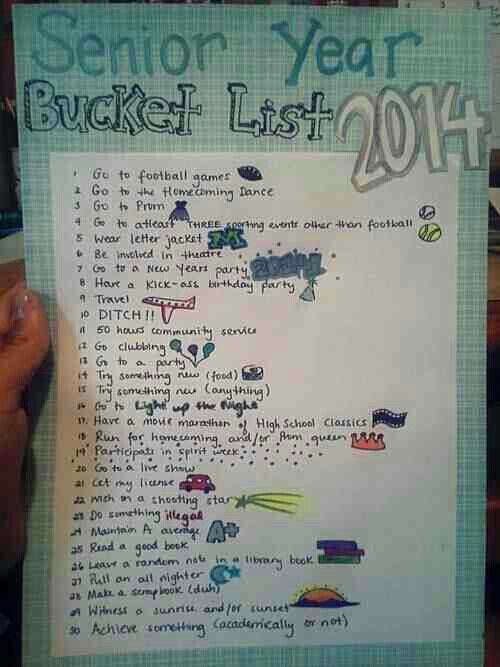 Senior Year
Bucket List 2014
1 Go to football games
2 Go to the Homecoming Dance
3 Go to Prom
4 Go to atleast THREE sporting events other than football
5 Wear letter jacket M
6 Be involved in theatre
7 Go to a New Years party 2014!
8 Have a kick-ass birthday party
9 Travel
10 DITCH!!
11 50 hours community service
12 Go clubbing
13 Go to a party
14 Try something new (food)
15 Try something new (anything)
16 Go to Light up the Night
17. Have a movie marathon of High School Classics
18 Run for homecoming and/or prom queen
19 Participate in spirit week
20 Go to a live show
21 Get my license
22 Wish on a shooting star
23 Do something illegal
24 Maintain A average A+
25 Read a good book
26 Leave a random note in a library book
27 Pull an all nighter
28 Make a scrapbook (duh)
29 Witness a sunrise and/or sunset
30 Achieve something (academically or not)